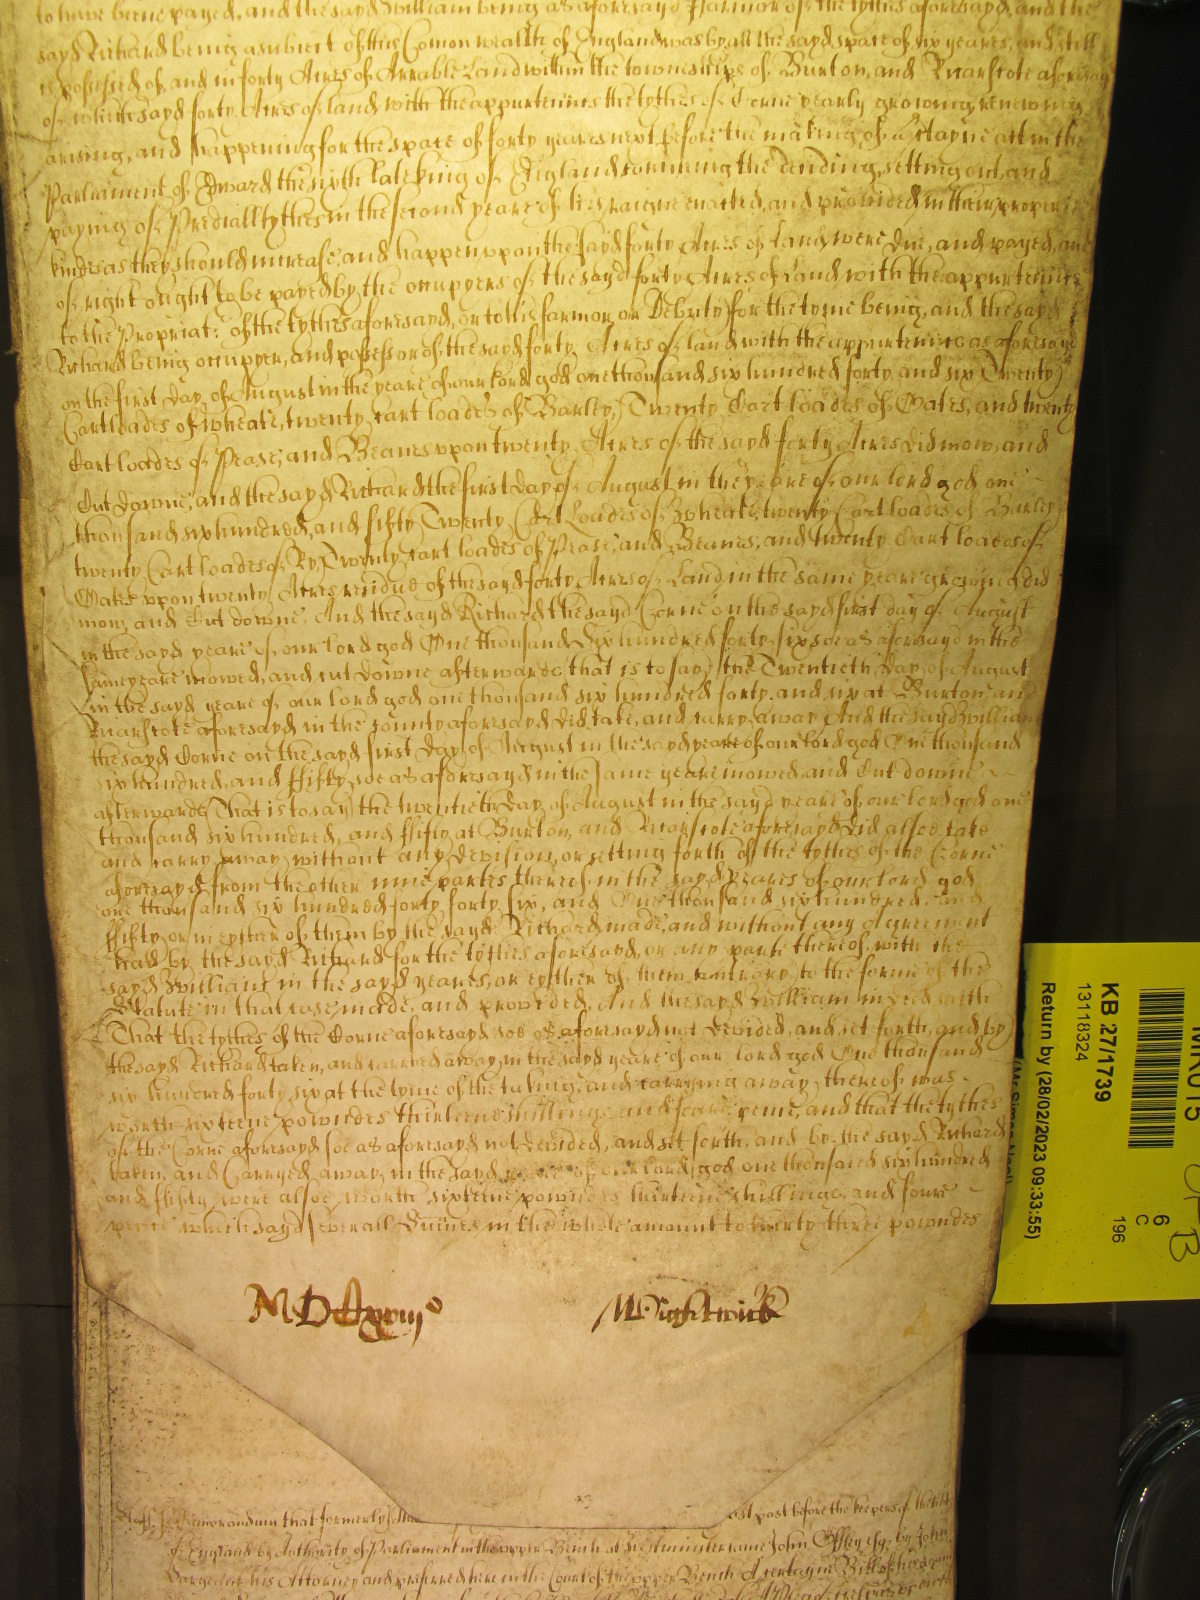 to have beene payed, and the sayd William being as aforesayd Farmor of the tythes aforesayd, and the
sayd Richard being a subiect of this Comon wealth of England was by all the sayd space of six yeares, and still
is possessed of, and in forty Acres of Arrable Land within the towneshipps of Burton, and aforesayd
of which sayd forty Acres of land with the appurtenncs the tythes of Corne yearly growing, renewing
arising, and happening for the space of forty yeares next before the making of a Certayne act in the
Parliament of Edward the sixth late king of England concerning the deviding, setting out, and
paying of Prediall tythes in the second yeare of his raigne enacted, and provided in their proper
kindes as they should increase, and happen vpon the sayd forty Acres of Land were due, and payed, and
of right ought to be payed by the occupyers of the sayd forty Acres of Land with the appurtenncs
to the Propriat: of the tythes aforesayd, or to his farmor, or Debuty for the tyme being, and the sayd
Richard being occupyer, and possessor of the sayd forty Acres of land with the appurtenncs as aforesayd
on the first day of August in the yeare of our lord god one thousand six hundred forty and six Twenty
Cart loades of wheate, twenty cart loades of Barley, Twenty Cart loades of Oates, and twenty
Cart loades of Pease, and Beanes vpon twenty Acres of the sayd forty Acres did mow, and
Cut downe, and the sayd Richard the first day of August in the yeare of our lord god one
thousand six hundred, and fifty Twenty Cart Loades of Wheate, twenty Cart loades of Barley
twenty Cart loades of Ry, Twenty cart loades of Pease, and Beanes, and twenty Cart loades of
Oates vpon twenty Acres residue of the sayd forty Acres of Land in the same yeare growing did
mow, and Cut downe. And the sayd Richard the sayd Corne on the sayd first day of August
in the sayd yeare of our lord god One thousand Six hundred forty six soe as aforesayd in the
same yeare mowed, and cut downe afterwards that is to say the Twentieth Day of August
in the sayd yeare of our lord god one thousand six hundred forty, and six at Burton, and
aforesayd in the county aforesayd did take, and carry away And the sayd William
the sayd Corne on the sayd first day of August in the sayd yeare of our lord god One thousand
six hundred, and ffifty soe as aforesayd in the same yeare mowed, and Cut downe
afterwards That is to say the twentieth day of August in the sayd yeare of our lord god one
thousand six hundred, and ffifty at Burton, and aforesayd did alsoe take
and carry away without any devision, or setting forth of the tythes of the Corne
aforesayd from the other nine partes thereof in the sayd yeares of our lord god
one thousand six hundred forty forty six, and One thousand six hundred, and
ffifty or in eyther of them by the sayd Richard made, and without any agreement
had by the sayd Richard for the tythes aforesayd, or any part thereof, with the
sayd William in the sayd yeares, or eyther of them contrary to the forme of the
Statute in that case made, and provided, And the sayd William in deed saith
That the tythes of the Corne aforesayd soe as aforesayd not devided, and set forth, and by
the sayd Richard taken, and carryed away in the sayd yeare of our lord god One thousand
six hundred forty six at the tyme of the taking, and carrying away thereof was
worth sixteene powndes thirteene shillings, and foure pence, and that the tythes
of the Corne aforesayd soe as aforesayd not devided, and set forth, and by the sayd Richard
taken, and Carryed away in the sayd yeare of our lord god one thousand six hundred
and ffifty were alsoe worth sixteene powndes thirteene shillings, and foure
pence which sayd severall Summes in the whole amount to thirty three powndes
past before the keepers of the liberty
Memorandum that formerly
of England by Authority of Parliament in the vpper Bench at Westminster came John Offley esqr by John
Sargeant his Attorney and preferred here in the Court of the vpper Bench A certayne Bill
KB 27/1739
13118324
Return by (28/02/2023 09:33:55)
6
C
196